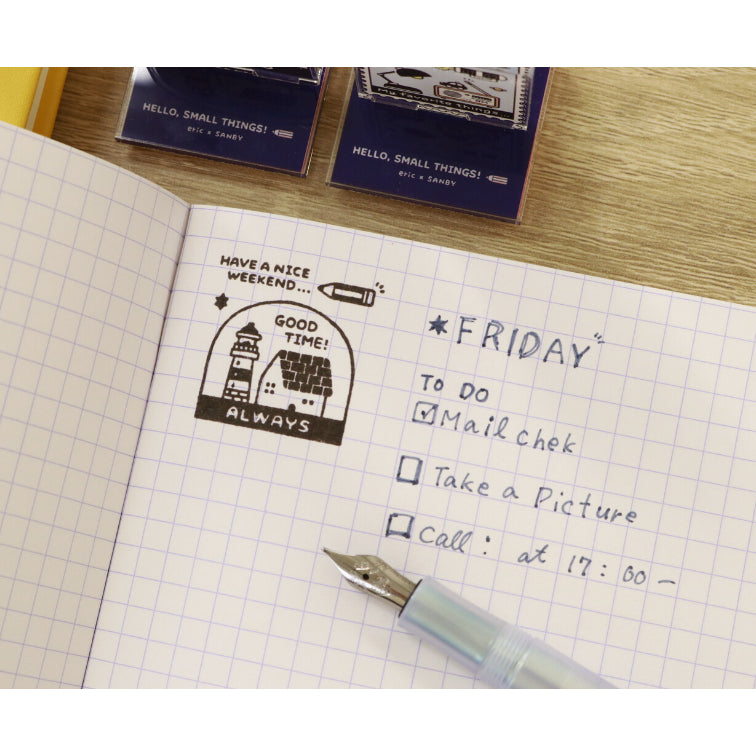 HELLO, SMALL THINGS!
eric x SANBY
My favorite things
HELLO, SMALL THINGS!
eric x SANBY
HAVE A NICE
WEEKEND...
GOOD
TIME!
ALWAYS
FRIDAY
TO DO
Mail chek
Take a Picture
Call : at 17 : 00 –